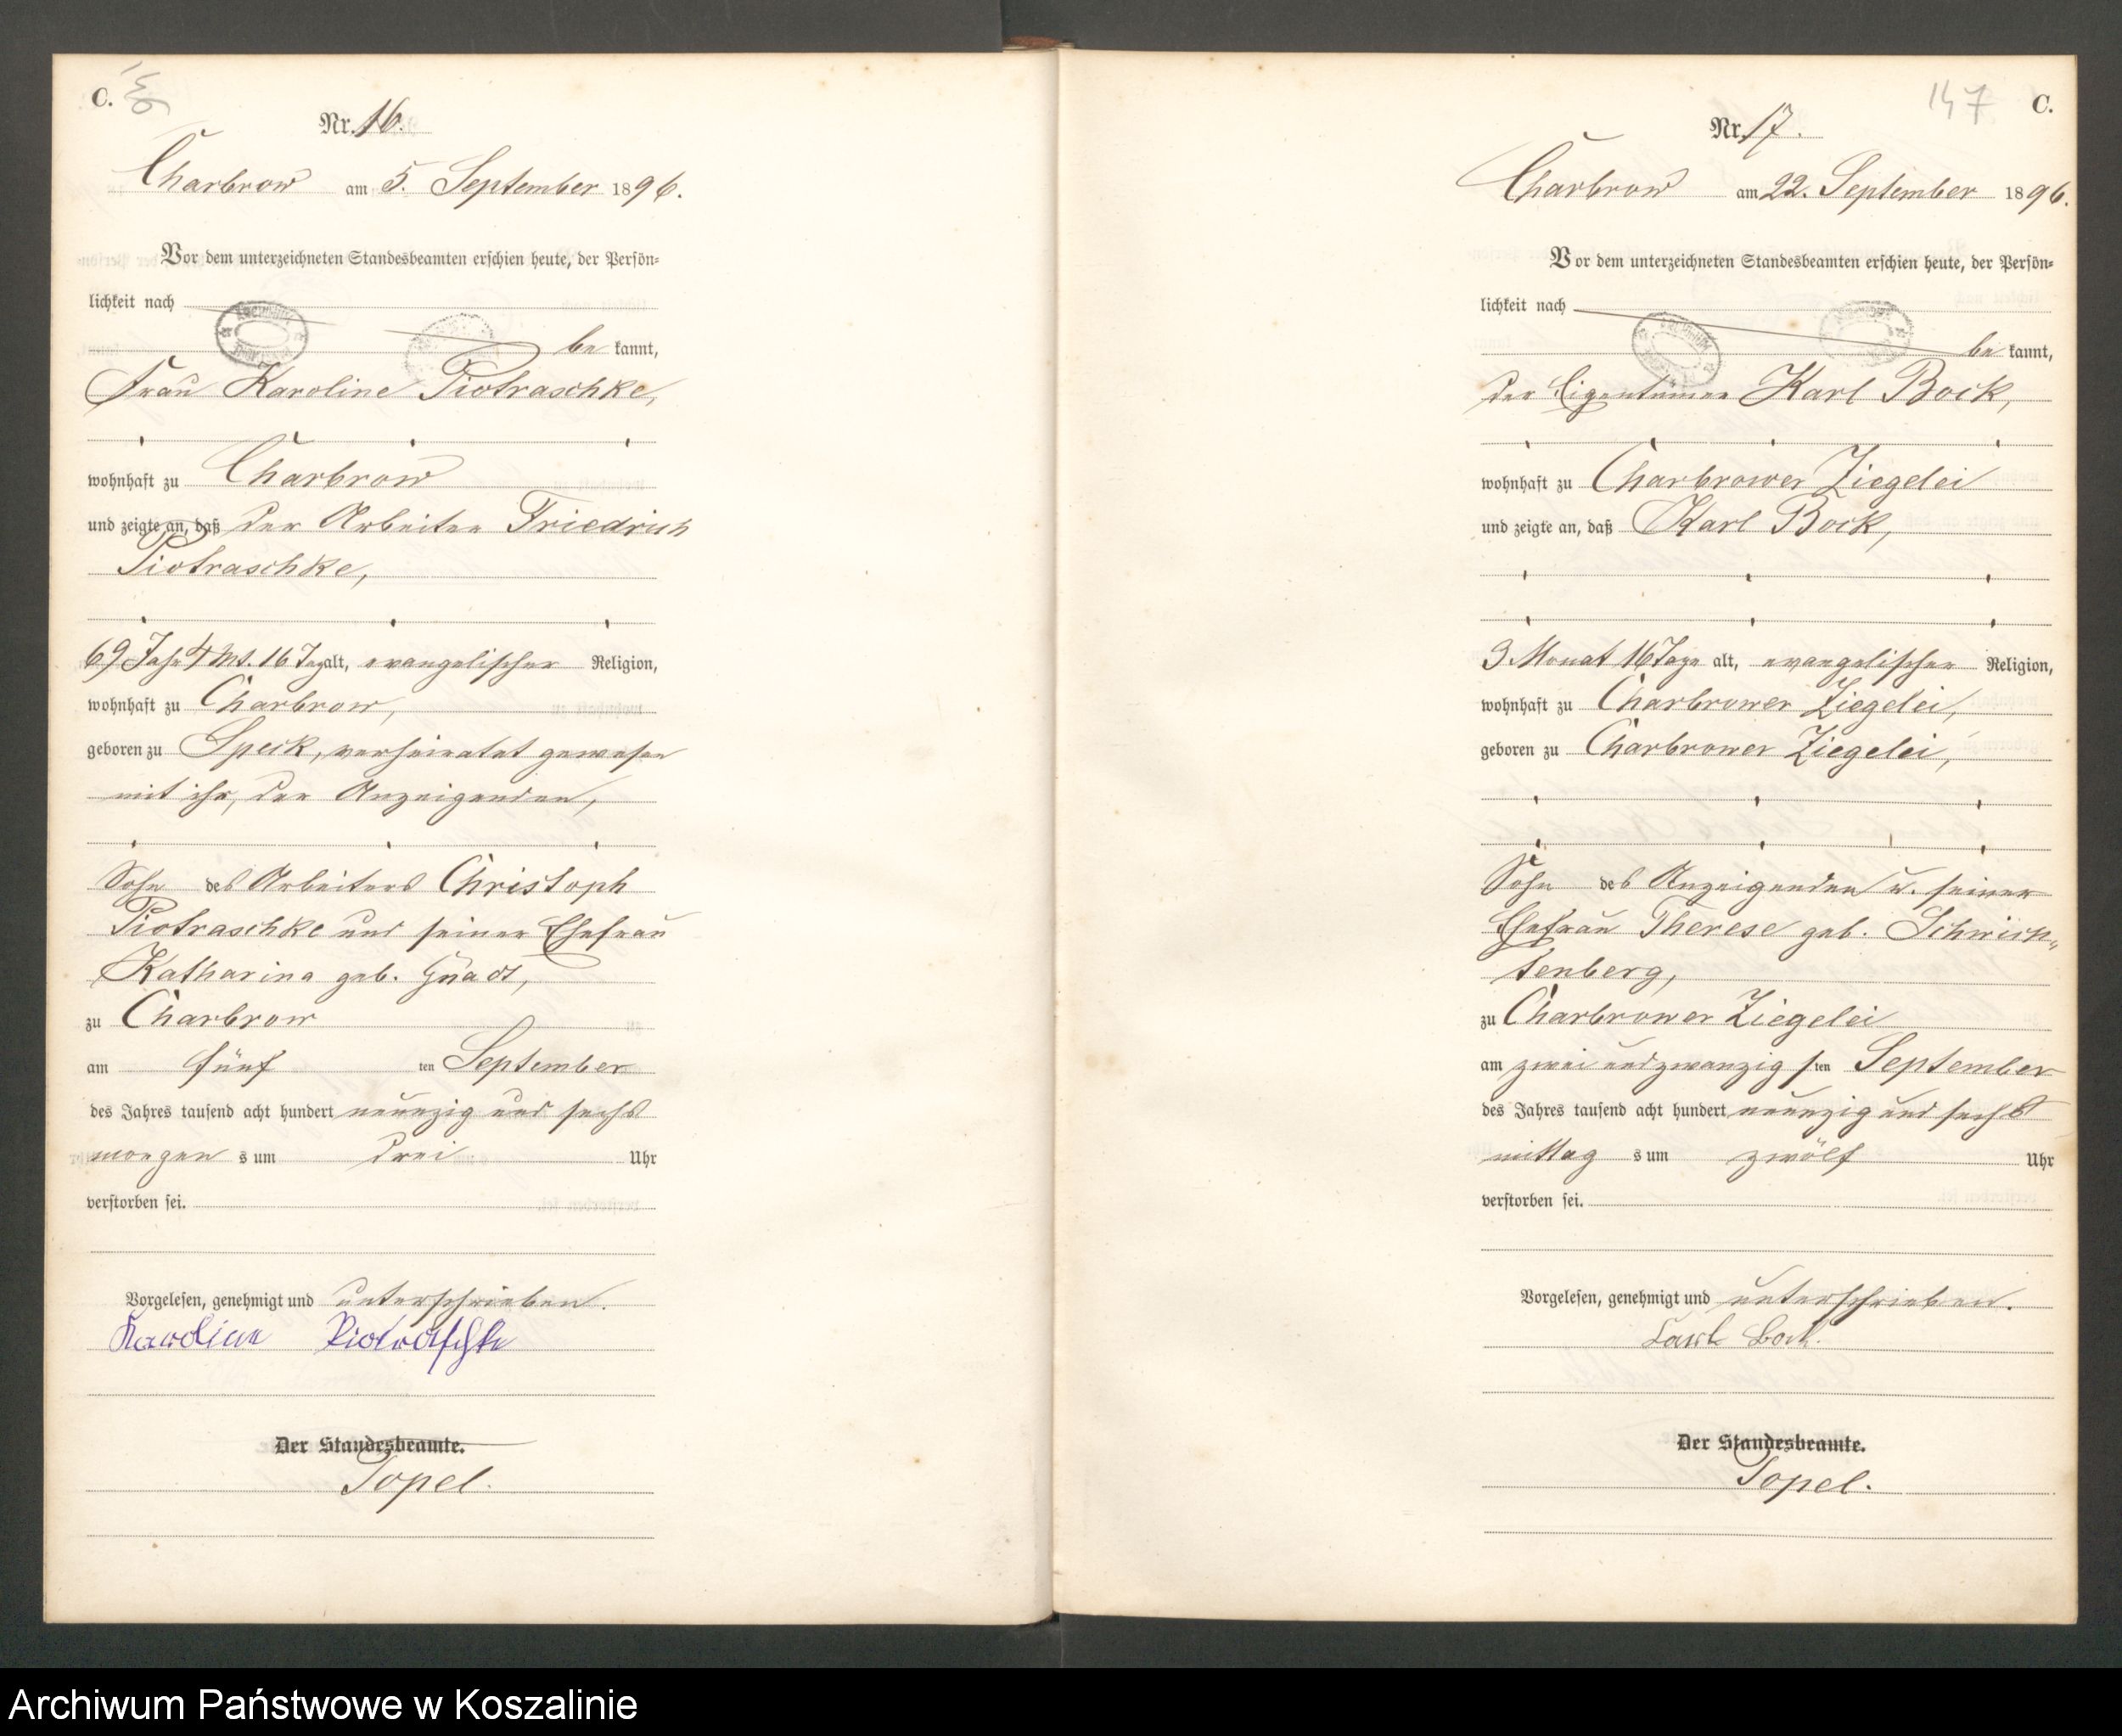 C.
Nr. 16.
Charbrow am 5. September 1896.
Vor dem unterzeichneten Standesbeamten erschien heute, der Persön-
lichkeit nach
be kannt,
Frau Karoline Piotraschke,
wohnhaft zu Charbrow
und zeigte an, daß der Arbeiter Friedrich
Piotraschke,
69 Jahr 4 Mt. 16 Tag alt, evangelischer Religion,
wohnhaft zu Charbrow,
geboren zu Speck, verheiratet gewesen
mit ihr, der Anzeigenden,
Sohn des Arbeiters Christoph
Piotraschke und seiner Ehefrau
Katharina geb.
zu Charbrow
am fünf ten September
des Jahres tausend acht hundert neunzig und sechs
morgen s um drei Uhr
verstorben sei.
Vorgelesen, genehmigt und unterschrieben.
Karoline Piotraschke
Der Standesbeamte.
Topel.
147 C.
Nr. 17.
Charbrow am 22. September 1896.
Vor dem unterzeichneten Standesbeamten erschien heute, der Persön-
lichkeit nach
be kannt,
der Eigentümer Karl Bock,
wohnhaft zu Charbrower Ziegelei
und zeigte an, daß Karl Bock,
3 Monat 16 Tage alt, evangelischer Religion,
wohnhaft zu Charbrower Ziegelei,
geboren zu Charbrower Ziegelei,
Sohn des Anzeigenden u. seiner
Ehefrau Therese geb. Schwich-
tenberg,
zu Charbrower Ziegelei
am zwei und zwanzig sten September
des Jahres tausend acht hundert neunzig und sechs
mittag s um zwölf Uhr
verstorben sei.
Vorgelesen, genehmigt und unterschrieben.
Carl Bock.
Der Standesbeamte.
Topel.
Archiwum Państwowe w Koszalinie